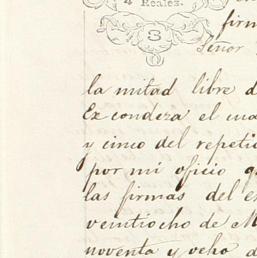 4 Reales.
3
firm
Señor
la mitad libre d
Ex condeza el cua
y cinco del repetid
por mi oficio q
las firmas del ex
veintiocho de M
noventa y ocho d